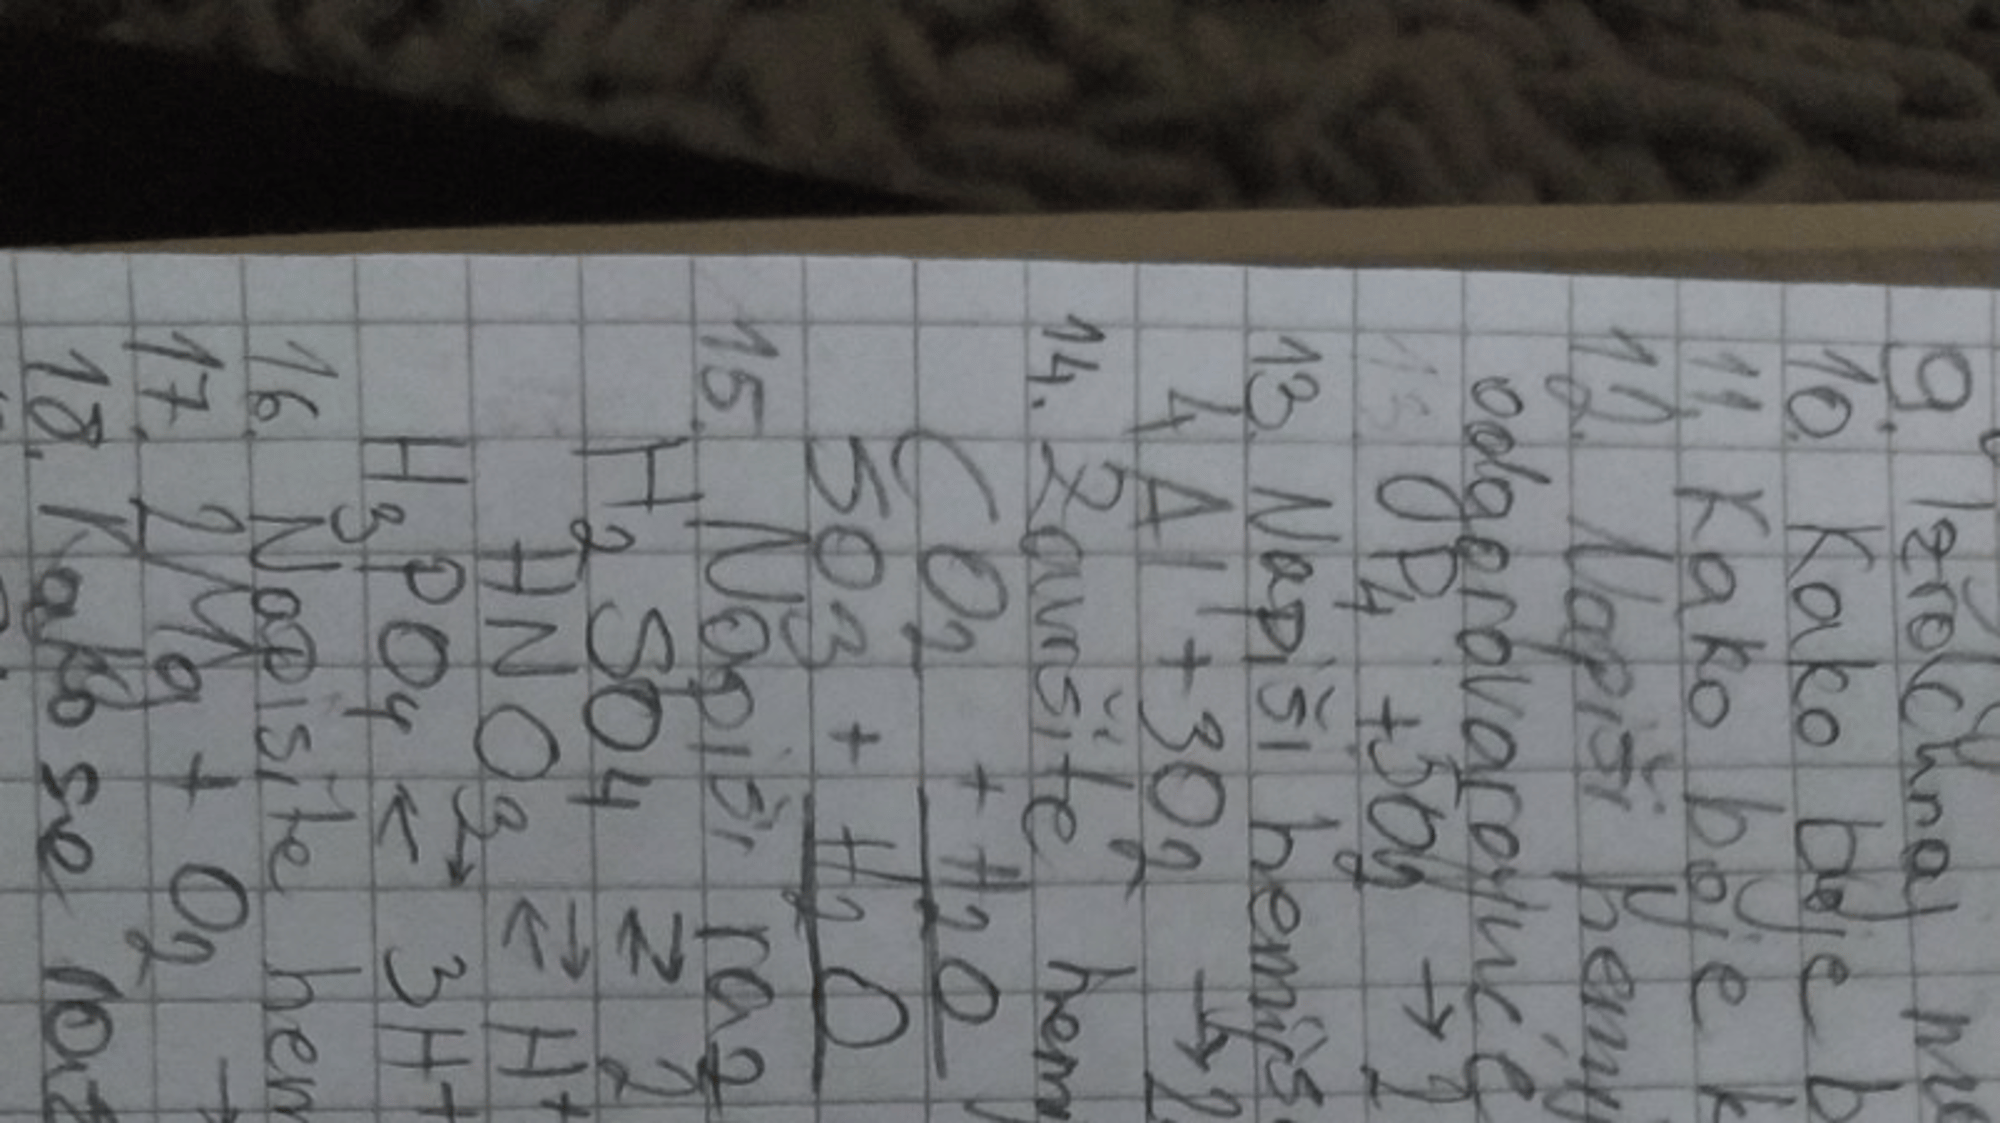 9. Izračunaj
10. Kako boje b
11. Kako boje k
12. Napiši hemij
odgovarajuće
P4 + 3O2 → 2
13. Napiši hemijs
4Al + 3O2 → 2
14. Završite hem
CO2 + H2O
SO3 + H2O
15. Napiši raz
H2SO4 ⇄ 2
HNO3 ⇄ H+
H3PO4 ⇄ 3H+
16. Napisite hem
17. 2Mg + O2 →
18. Kako se